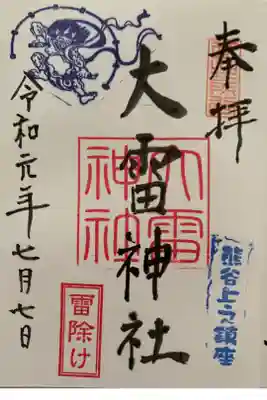 奉拝
熊谷上之鎮座
大雷神社
大雷神社
雷除け
令和元年七月七日